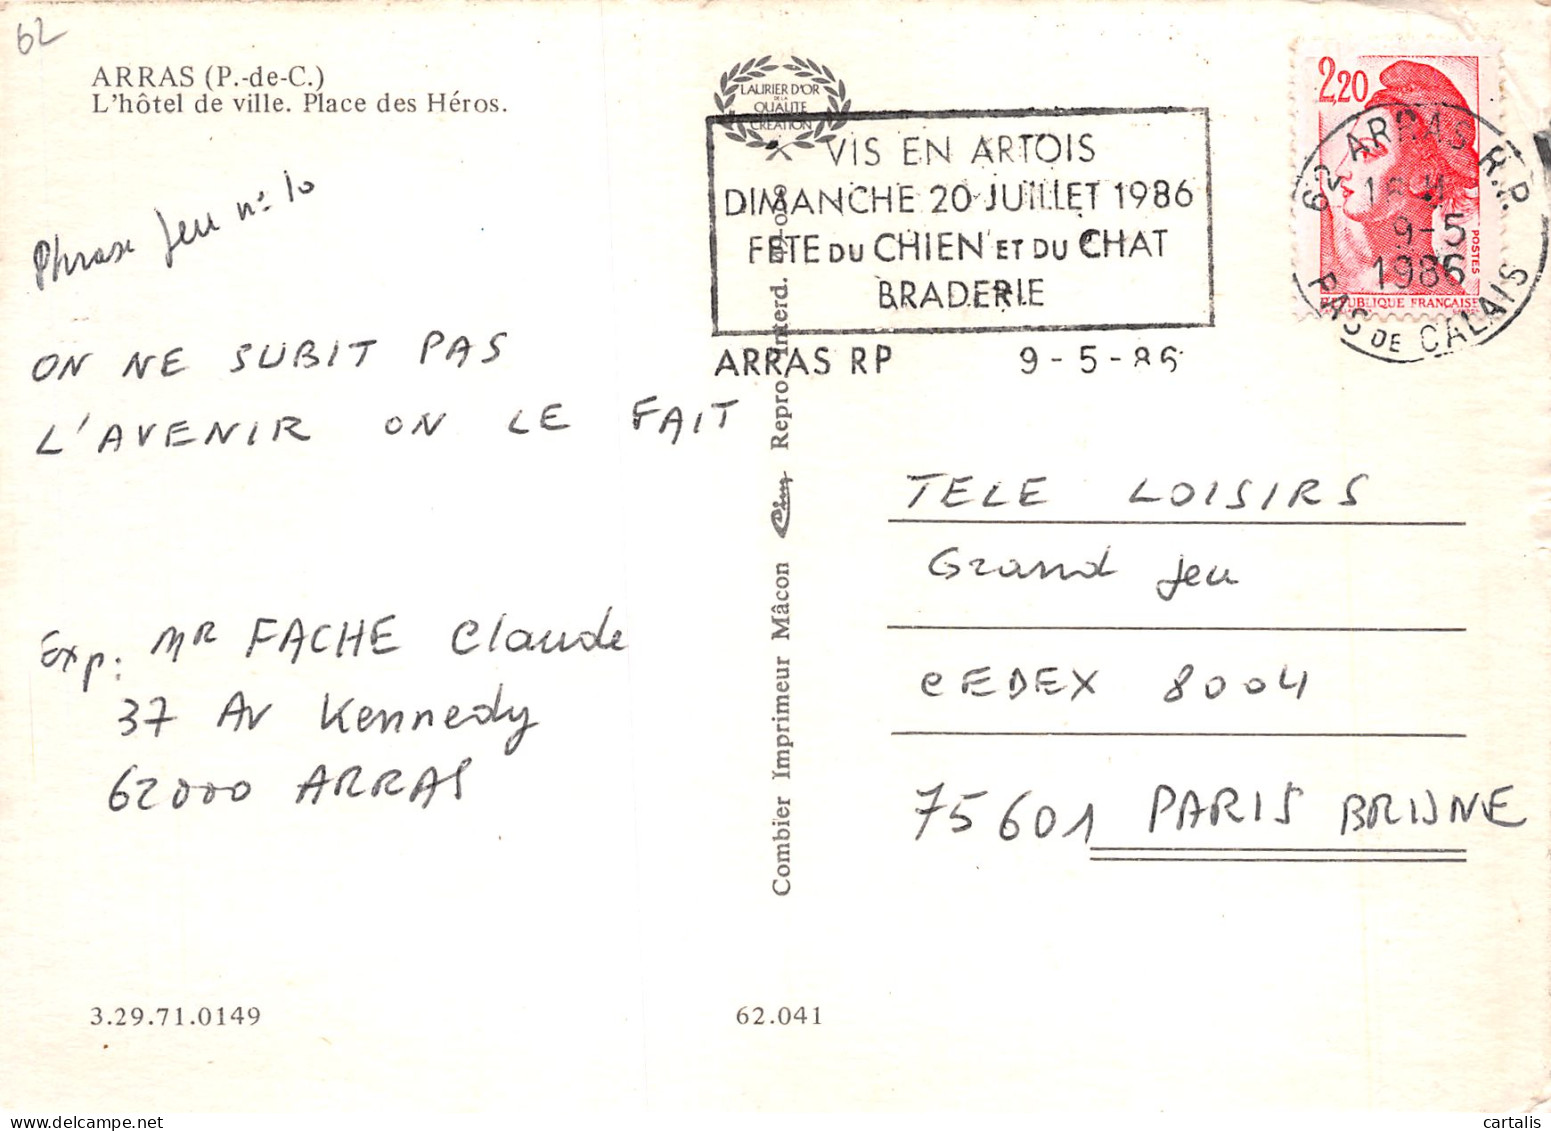 62
ARRAS (P.-de-C.)
L'hôtel de ville. Place des Héros.
Phrase Jeu n° 10
ON NE SUBIT PAS
L'AVENIR ON LE FAIT
Exp: MR FACHE Claude
37 Av Kennedy
62000 ARRAS
3.29.71.0149
LAURIER D'OR
DE LA
QUALITE
CREATION
VIS EN ARTOIS
DIMANCHE 20 JUILLET 1986
FETE DU CHIEN ET DU CHAT
BRADERIE
ARRAS RP 9-5-86
Combier Imprimeur Mâcon Cim Repro. Interd.
2,20
POSTES
REPUBLIQUE FRANÇAISE
62 ARRAS R.P.
9-5
1986
PAS DE CALAIS
TELE LOISIRS
Grand Jeu
CEDEX 8004
75601 PARIS BRUNE
62.041
cartalis